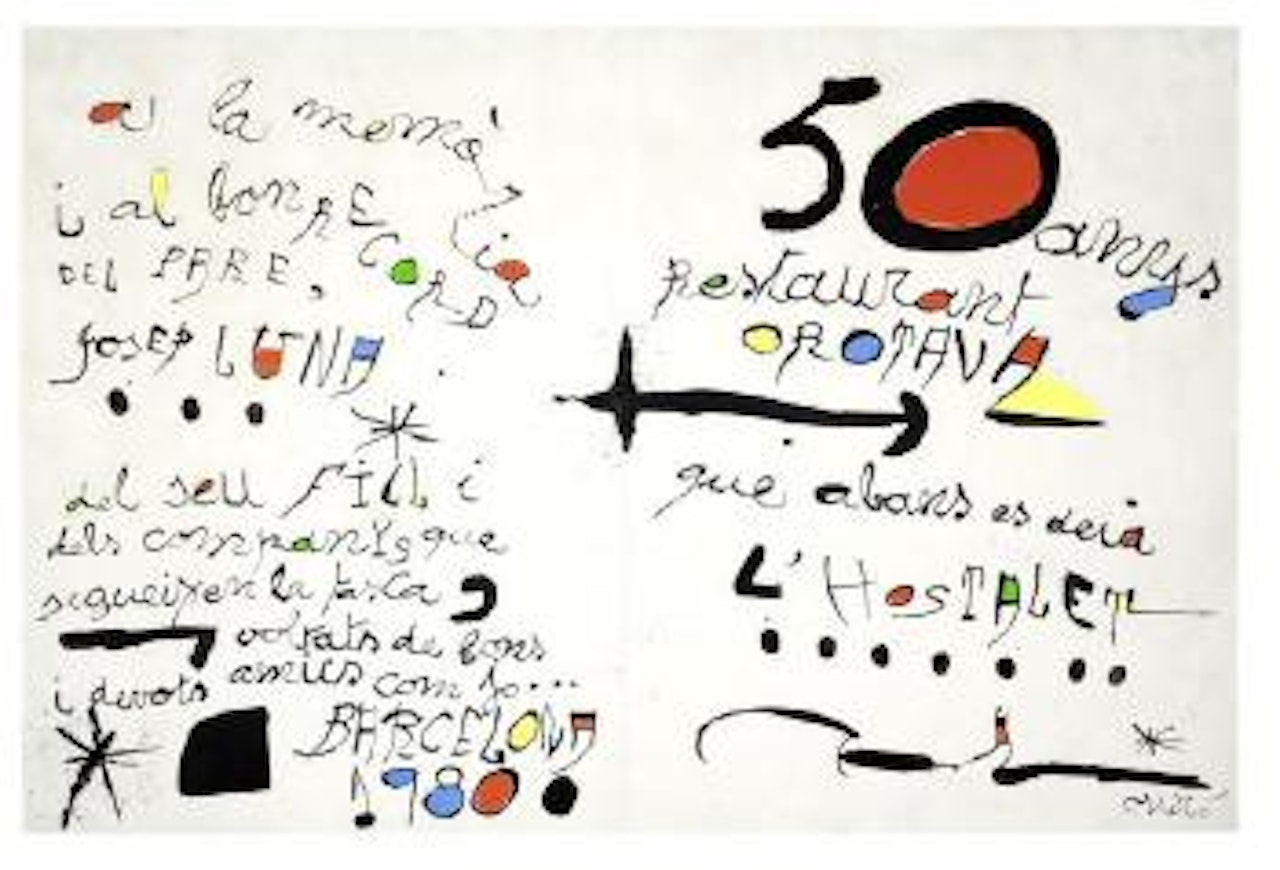 a la memò
ria
i al bon RE
CORD
DEL PARE,
JOSEP LUNA
del seu FILL i
dels companys que
segueixen la tasca
voltats de bons
i devots amics com jo...
BARCELONA
1980.
50 anys
Restaurant
OROTAVA
que abans es deia
L'HOSTALET
Miró